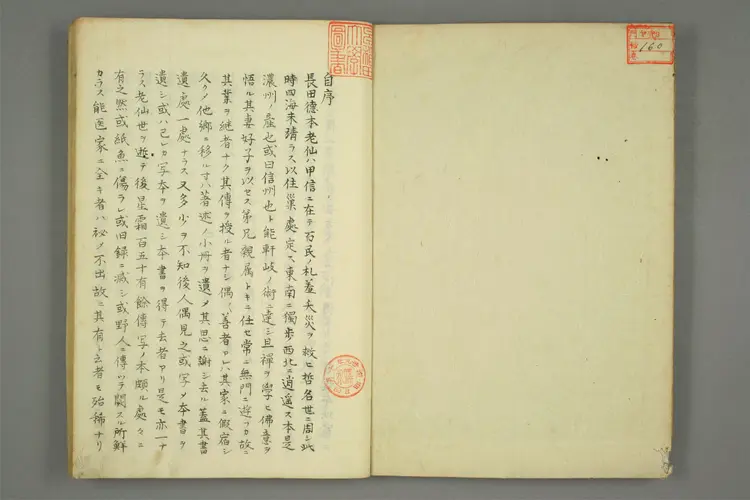 自序
長田德本老仙ハ甲信ニ在テ万民ノ札蓋夭災ヲ救ヒ哲名世ニ周シ此
時四海未靖ラス以住巣處定ス東南ニ獨歩西北ニ逍遥ス本是
濃州ノ産也或曰信州也ト能軒岐ノ術ニ達シ且禪ヲ學ヒ佛意ヲ
悟ル其妻好子ヲ以セス弟兄親属トモニ仕セ常ニ無門ニ遊フカ故ニ
其業ヲ継者ナク其傳ヲ授ル者ナシ偶善者アレハ其家ニ假宿シ
久クノ他郷ニ移ル寸ハ著述ノ小冊ヲ遺メ其恩ニ謝シ去ル蓋其書
遺處一處ナラス又多少ヲ不知後人偶見之或写メ本書ヲ
遺シ或ハ己レカ写本ヲ遺シ本書ヲ得テ去者アリ是モ亦一ナ
ラス老仙世ヲ逝テ後星霜百五十有餘傳写ノ本頗ル處々ニ
有之然或紙魚ニ傷ラレ或旧録ニ滅シ或野人ニ傳ハツテ闕スル所鮮
カラス能医家ニ全キ者ハ祕メ不出故ニ其有ト云者モ殆稀ナリ
160